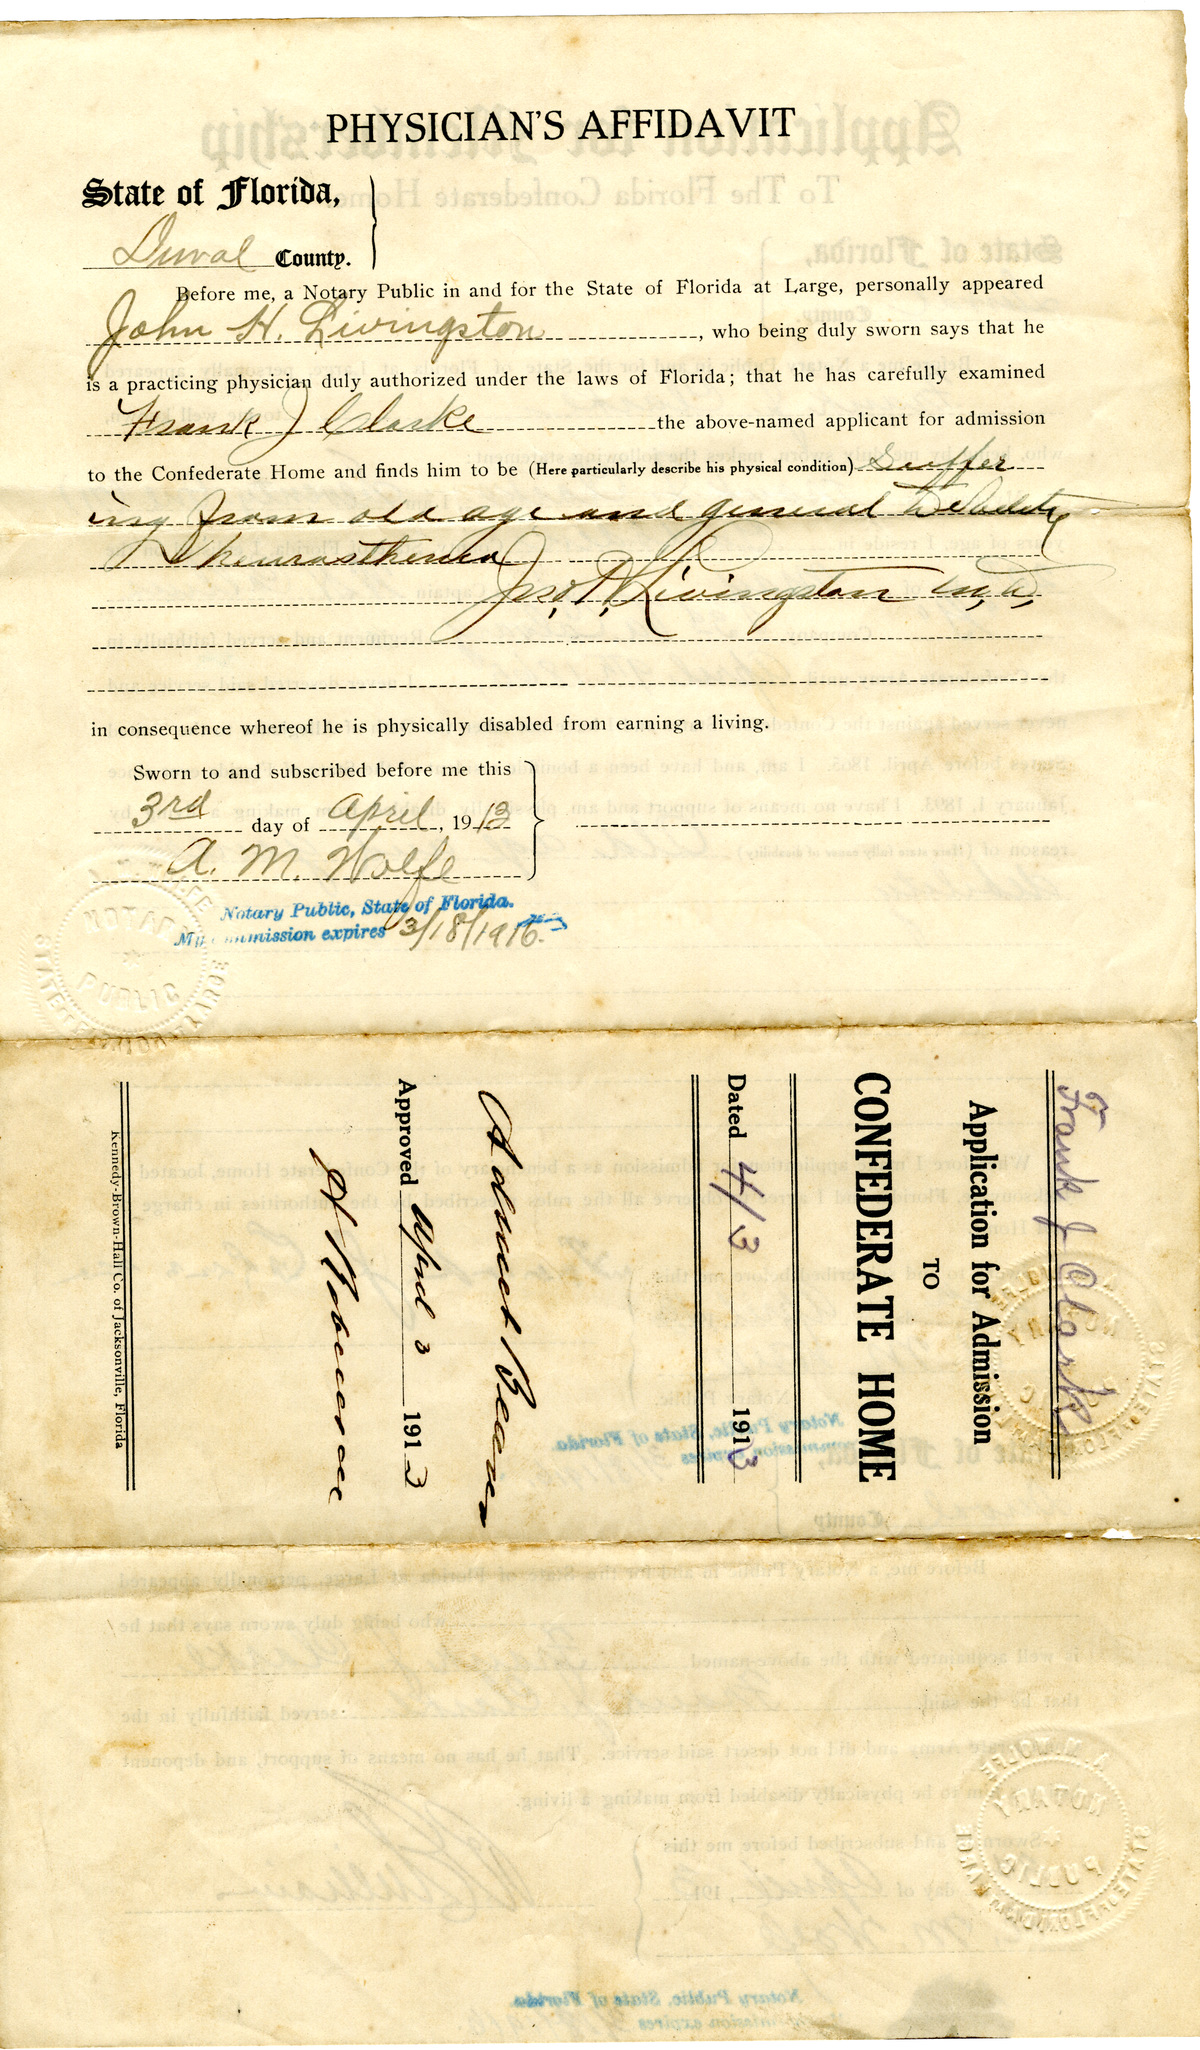 PHYSICIAN'S AFFIDAVIT
State of Florida,
Duval County.
Before me, a Notary Public in and for the State of Florida at Large, personally appeared
John H. Livingston, who being duly sworn says that he
is a practicing physician duly authorized under the laws of Florida; that he has carefully examined
Frank J Clarke the above-named applicant for admission
to the Confederate Home and finds him to be (Here particularly describe his physical condition) Suffer
ing from old age and general Debility
Neurasthenia
Jno. H. Livingston M.D.
in consequence whereof he is physically disabled from earning a living.
Sworn to and subscribed before me this
3rd day of April, 1913
A. M. Wolfe
Notary Public, State of Florida.
My commission expires 3/18/1916.
NOTARY
PUBLIC
Frank J Clark
Application for Admission
TO
CONFEDERATE HOME
Dated 4/3 1913
Admit
Approved April 3 1913
Kennedy-Brown-Hall Co. of Jacksonville, Florida
A. M. WOLFE
NOTARY
PUBLIC
STATE OF FLORIDA AT LARGE